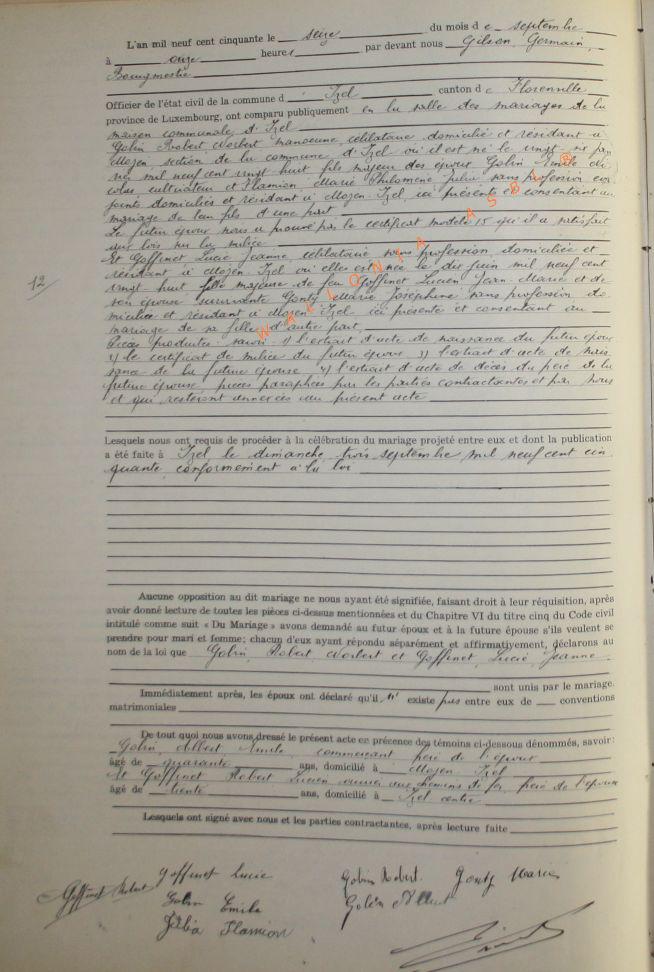 L'an mil neuf cent cinquante le seize du mois de septembre
à onze heures par devant nous Gilson, Germain,
Bourgmestre
Officier de l'état civil de la commune d' Izel canton de Florenville
province de Luxembourg, ont comparu publiquement en la salle des mariages de la
maison communale d'Izel
Golin Robert Norbert manoeuvre, célibataire domicilié et résidant à
Moyen section de la commune d'Izel où il est né le vingt
mil neuf cent vingt huit fils majeur des époux Golin Emile
cultivateur et Hamion, Marie Philomène Julia sans profession con
joints domiciliés et résidant à Moyen-Izel, ici présents et consentant au
mariage de leur fils d'une part
Le futur époux nous a prouvé par le certificat modèle 15 qu'il a satisfait
aux lois sur la milice
Et Goffinet Lucie Jeanne célibataire sans profession, domiciliée et
résidant à Moyen-Izel où elle est née le dix juin mil neuf cent
vingt huit fille majeure de feu Goffinet Lucien Jean-Marie et de
son épouse survivante Gonty Marie Joséphine sans profession do
miciliée et résidant à Moyen-Izel ici présente et consentant au
mariage de sa fille d'autre part
Pièces produites savoir 1) l'extrait d'acte de naissance du futur époux
2) le certificat de milice du futur époux 3) l'extrait d'acte de nais
sance de la future épouse 4) l'extrait d'acte de décès du père de la
future épouse, pièces paraphées par les parties contractantes et par nous
et qui resteront annexées au présent acte
12
WALLONIA ASBL
Lesquels nous ont requis de procéder à la célébration du mariage projeté entre eux et dont la publication
a été faite à Izel le dimanche trois septembre mil neuf cent cin
quante conformément à la loi
Aucune opposition au dit mariage ne nous ayant été signifiée, faisant droit à leur réquisition, après
avoir donné lecture de toutes les pièces ci-dessus mentionnées et du Chapitre VI du titre cinq du Code civil
intitulé comme suit « Du Mariage » avons demandé au futur époux et à la future épouse s'ils veulent se
prendre pour mari et femme; chacun d'eux ayant répondu séparément et affirmativement, déclarons au
nom de la loi que Golin, Robert Norbert et Goffinet, Lucie Jeanne
sont unis par le mariage.
Immédiatement après, les époux ont déclaré qu'il n' existe pas entre eux de conventions
matrimoniales
De tout quoi nous avons dressé le présent acte en précence des témoins ci-dessous dénommés, savoir:
Golin, Albert Emile, commerçant frère de l'époux
âgé de quarante ans, domicilié à Moyen-Izel
Et Goffinet Robert Lucien ouvrier aux chemins de fer, frère de l'épouse
âgé de trente ans, domicilié à Izel centre
Lesquels ont signé avec nous et les parties contractantes, après lecture faite
Goffinet Robert Goffinet Lucie Golin Robert. Gonty Marie
Golin Emile Golin Albert
Julia Hamion